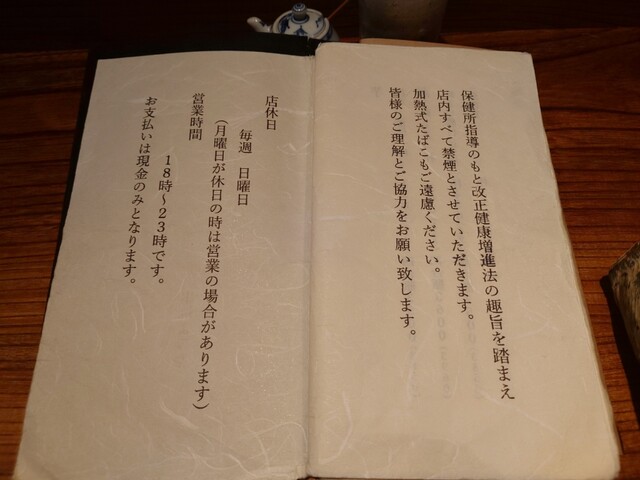 保健所指導のもと改正健康増進法の趣旨を踏まえ
店内すべて禁煙とさせていただきます。
加熱式たばこもご遠慮ください。
皆様のご理解とご協力をお願い致します。
店休日
毎週　日曜日
（月曜日が休日の時は営業の場合があります）
営業時間
１８時～２３時です。
お支払いは現金のみとなります。